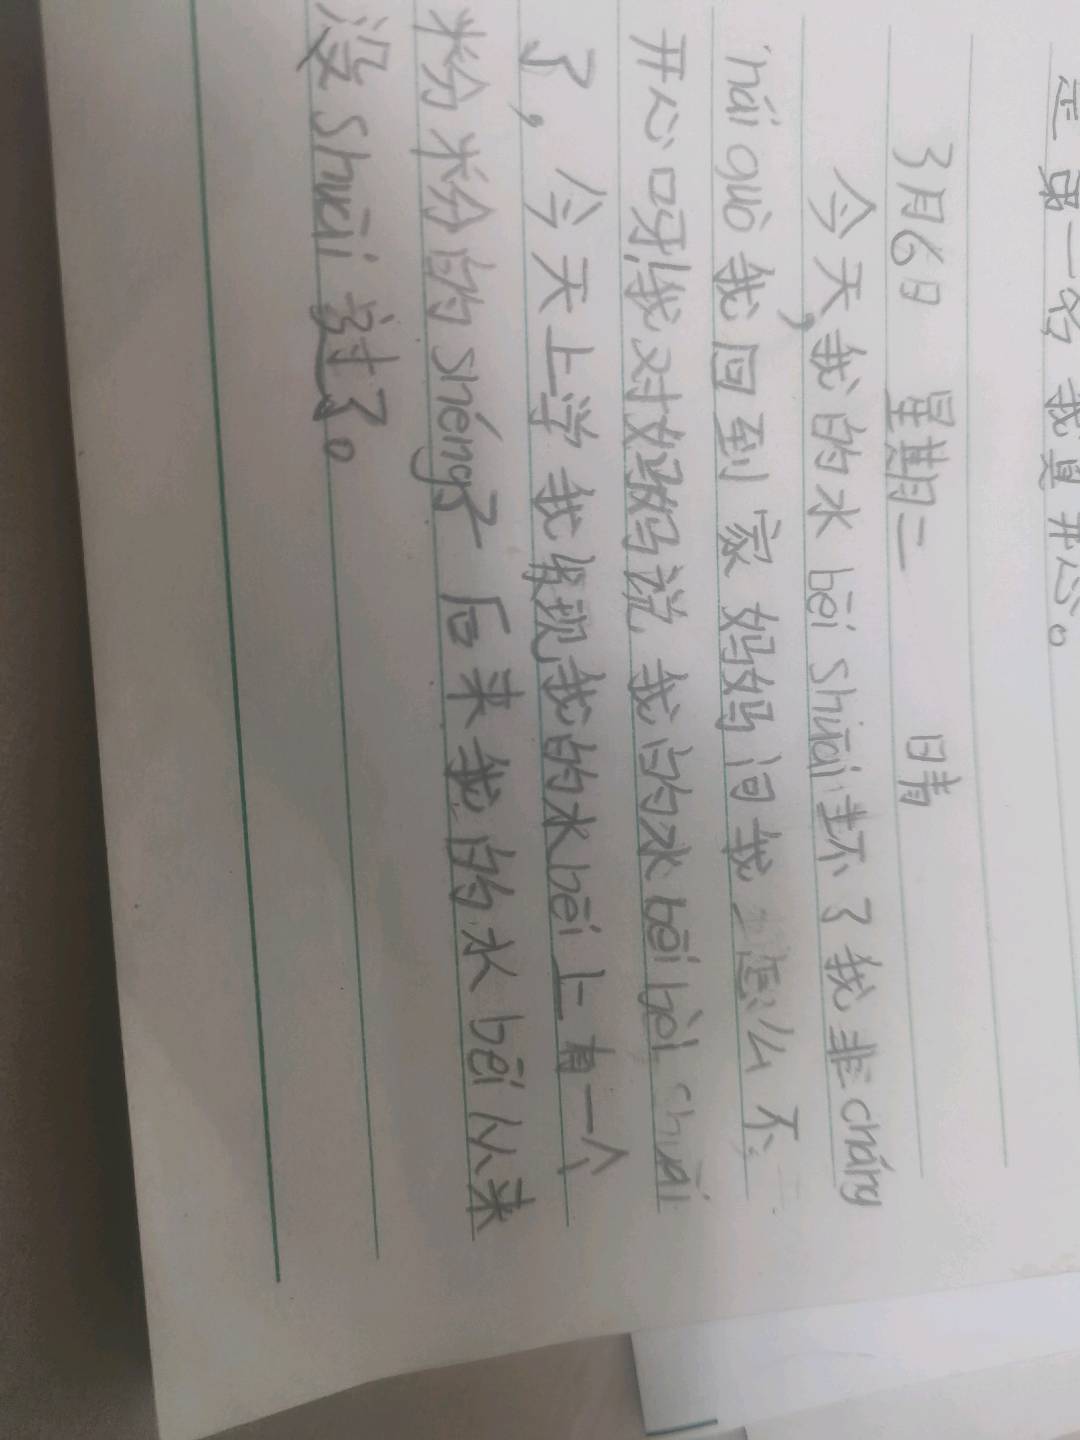 是第一名 我真开心。
3月6日 星期二 晴
今天,我的水bēi shuāi坏了我非cháng
nái guò我回到家妈妈问我怎么不
开心呀!我对妈妈说,我的水bēi bèi shuāi
了,今天上学我发现我的水bēi上有一个
粉粉的shéng子 后来我的水bēi从来
没shuāi过了。